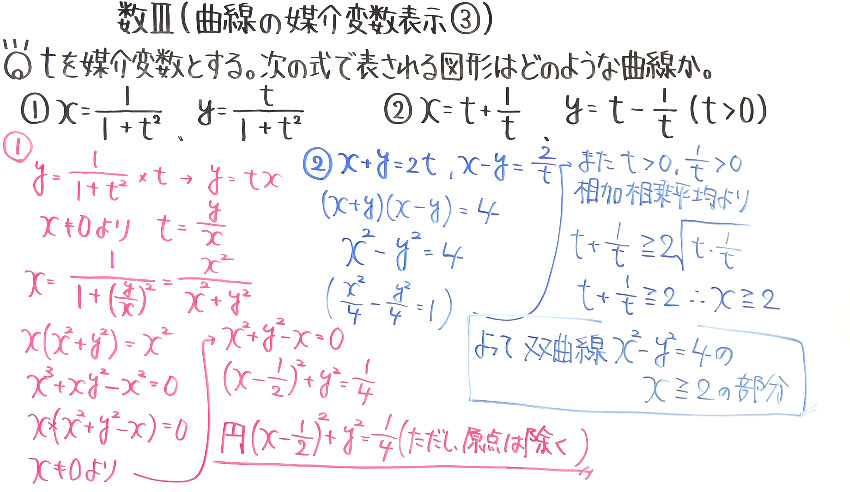 数Ⅲ(曲線の媒介変数表示③)
tを媒介変数とする。次の式で表される図形はどのような曲線か。
① x=1/(1+t²)、y=t/(1+t²)
② x=t+1/t、y=t-1/t (t>0)
①
y=1/(1+t²)×t → y=tx
x≠0より t=y/x
x=1/(1+(y/x)²)=x²/(x²+y²)
x(x²+y²)=x²
x³+xy²-x²=0
x(x²+y²-x)=0
x≠0より
→ x²+y²-x=0
(x-1/2)²+y²=1/4
円(x-1/2)²+y²=1/4(ただし、原点は除く)
② x+y=2t, x-y=2/t
(x+y)(x-y)=4
x²-y²=4
(x²/4-y²/4=1)
→ また t>0, 1/t>0
相加相乗平均より
t+1/t≧2√(t・1/t)
t+1/t≧2 ∴x≧2
よって 双曲線 x²-y²=4の
x≧2の部分